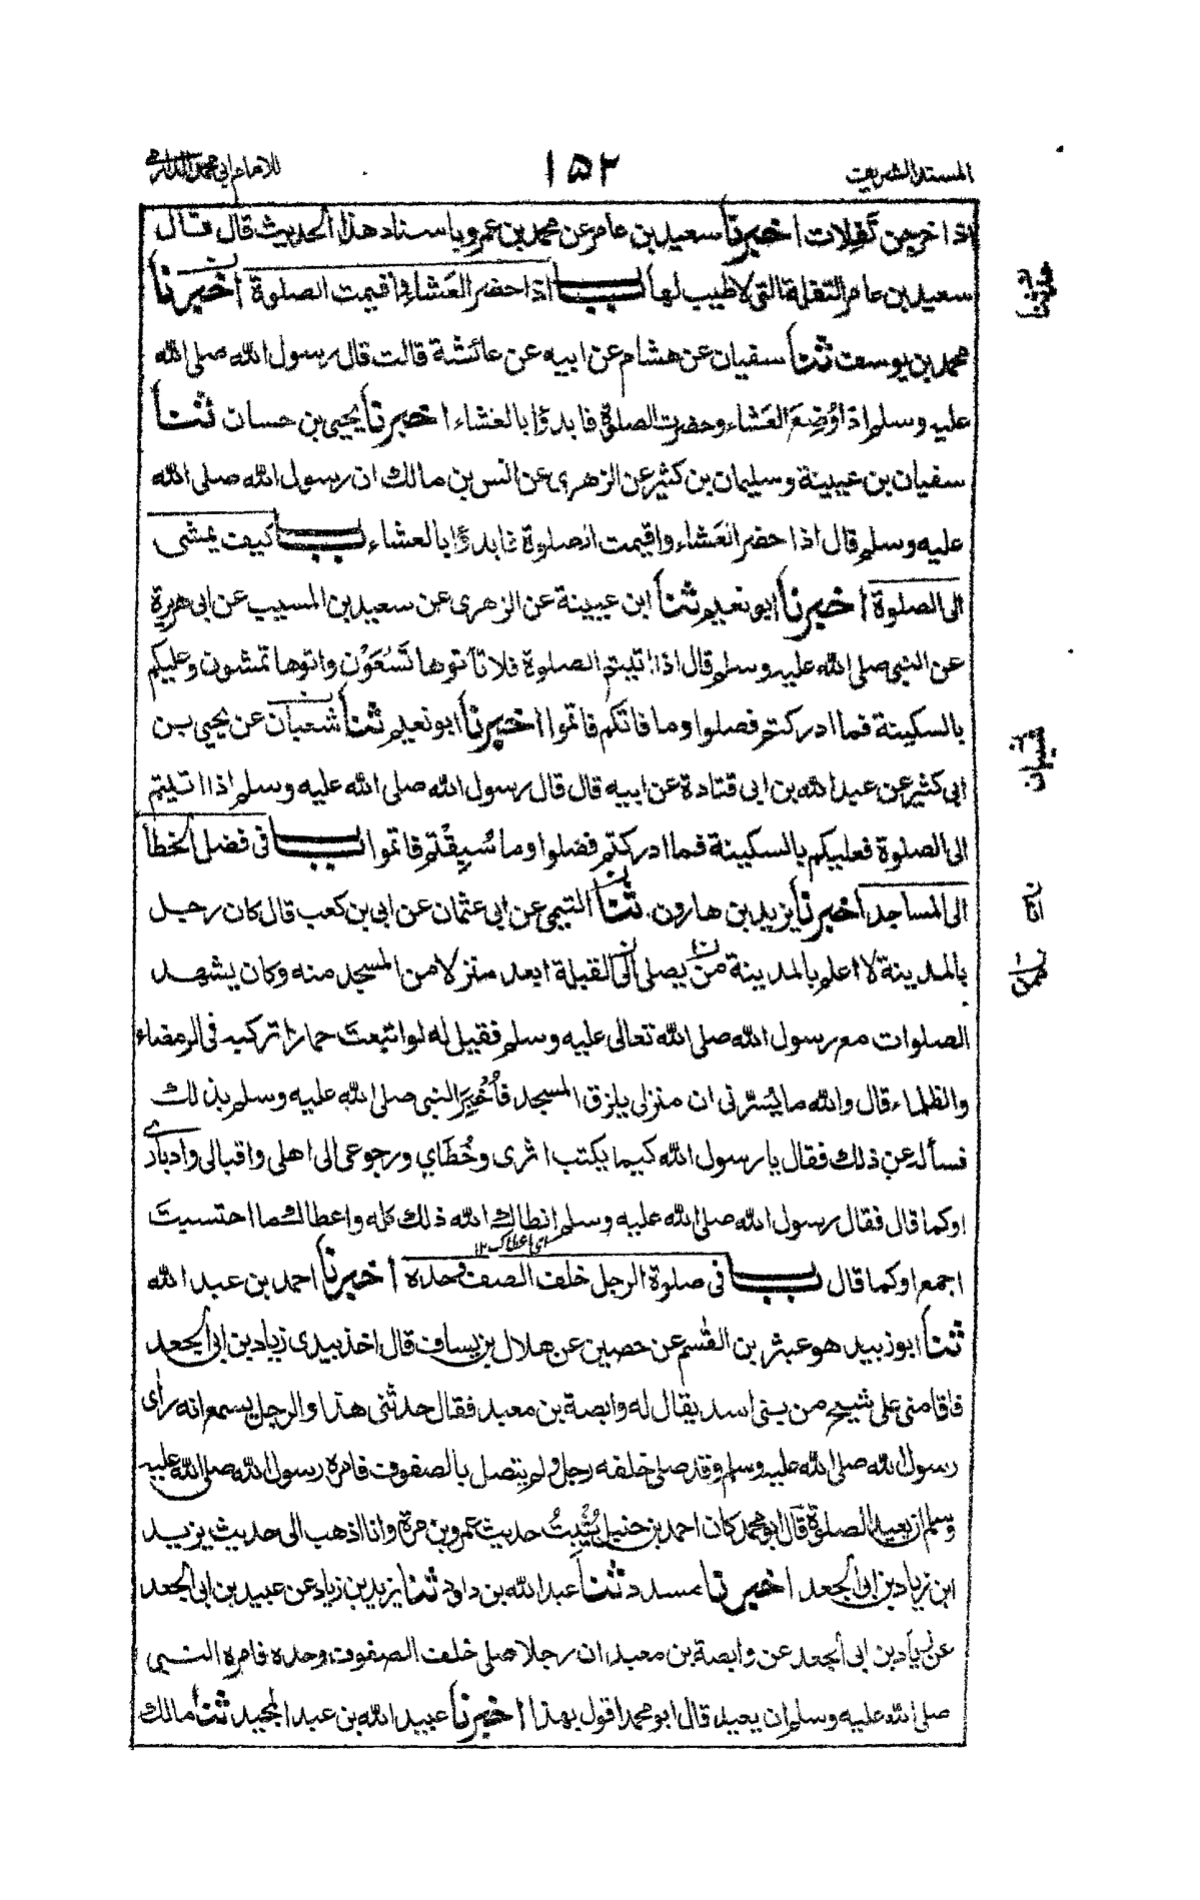 المسند الشريف
١٥٢
للامام ابي محمد الدارمي
اذا خرجن تَفِلات اخبرنا سعيد بن عامر عن محمد بن عمرو باسناد هذا الحديث قال قال
سعيد بن عامر التفلة التى لا طيب لها باب اذا حضر العَشاء واقيمت الصلوة اخبرنا
محمد بن يوسف ثنا سفيان عن هشام عن ابيه عن عائشة قالت قال رسول الله صلى الله
عليه وسلم اذا وُضِعَ العَشاء وحضرت الصلوة فابدؤا بالعَشاء اخبرنا يحيى بن حسان ثنا
سفيان بن عيينة وسليمان بن كثير عن الزهرى عن انس بن مالك ان رسول الله صلى الله
عليه وسلم قال اذا حضر العَشاء واقيمت الصلوة فابدؤا بالعشاء باب كيف يمشى
الى الصلوة اخبرنا ابو نعيم ثنا ابن عيينة عن الزهرى عن سعيد بن المسيب عن ابى هريرة
عن النبى صلى الله عليه وسلم قال اذا اتيتم الصلوة فلا تأتوها تَسْعَوْن واتوها تمشون وعليكم
بالسكينة فما ادركتم فصلوا وما فاتكم فاتموا اخبرنا ابو نعيم ثنا شعبان عن يحيى بن
ابى كثير عن عبد الله بن ابى قتادة عن ابيه قال قال رسول الله صلى الله عليه وسلم اذا اتيتم
الى الصلوة فعليكم بالسكينة فما ادركتم فصلوا وما سُبِقْتم فاتموا باب فى فضل الخطا
الى المساجد اخبرنا يزيد بن هارون ثنا التيمى عن ابى عثمان عن ابى بن كعب قال كان رجل
بالمدينة لا اعلم بالمدينة من يصلى الى القبلة ابعد منزلا من المسجد منه وكان يشهد
الصلوات مع رسول الله صلى الله تعالى عليه وسلم فقيل له لو ابتعتَ حمارا تركبه فى الرمضاء
والظلماء قال والله ما يَسُرّنى ان منزلى بلزق المسجد فأُخْبِرَ النبى صلى الله عليه وسلم بذلك
فسأله عن ذلك فقال يا رسول الله كيما يكتب اثرى وخُطَاي ورجوعى الى اهلى واقبالى وادبارى
او كما قال فقال رسول الله صلى الله عليه وسلم انطاك الله ذلك كله واعطاك ما احتسبتَ
اى اعطاك ١٢
اجمع او كما قال باب فى صلوة الرجل خلف الصف وحده اخبرنا احمد بن عبد الله
ثنا ابو زبيد هو عبثر بن القسم عن حصين عن هلال بن يساف قال اخذ بيدى زياد بن ابى الجعد
فاقامنى على شيخ من بنى اسد يقال له وابصة بن معبد فقال حدثنى هذا والرجل يسمع انه رأى
رسول الله صلى الله عليه وسلم وقد صلى خلفه رجل ولم يتصل بالصفوف فامره رسول الله صلى الله عليه
وسلم ان يعيد الصلوة قال ابو محمد كان احمد بن حنبل يُثْبِتُ حديث عمرو بن مرة وانا اذهب الى حديث يزيد
ابن زياد بن ابى الجعد اخبرنا مسدد ثنا عبد الله بن داود ثنا يزيد بن زياد عن عبيد بن ابى الجعد
عن زياد بن ابى الجعد عن وابصة بن معبد ان رجلا صلى خلف الصفوف وحده فامره النبى
صلى الله عليه وسلم ان يعيد قال ابو محمد اقول بهذا اخبرنا عبيد الله بن عبد المجيد ثنا مالك
حدثنا
شيبان